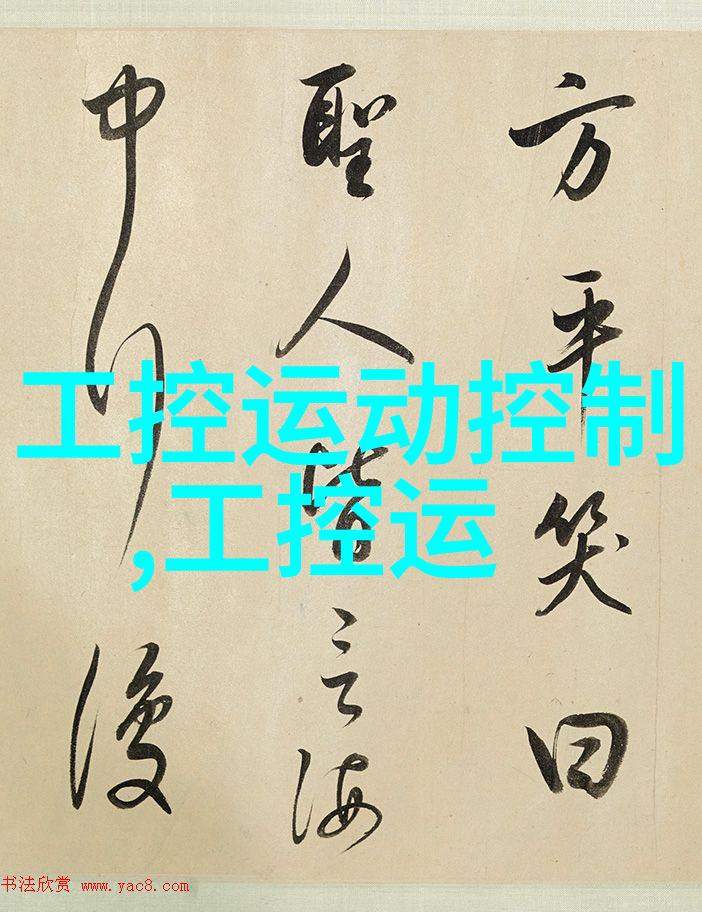 方平笑曰
聖人皆言海
中行復
工控运动控制
,工控运
书法欣赏 www.yac8.com